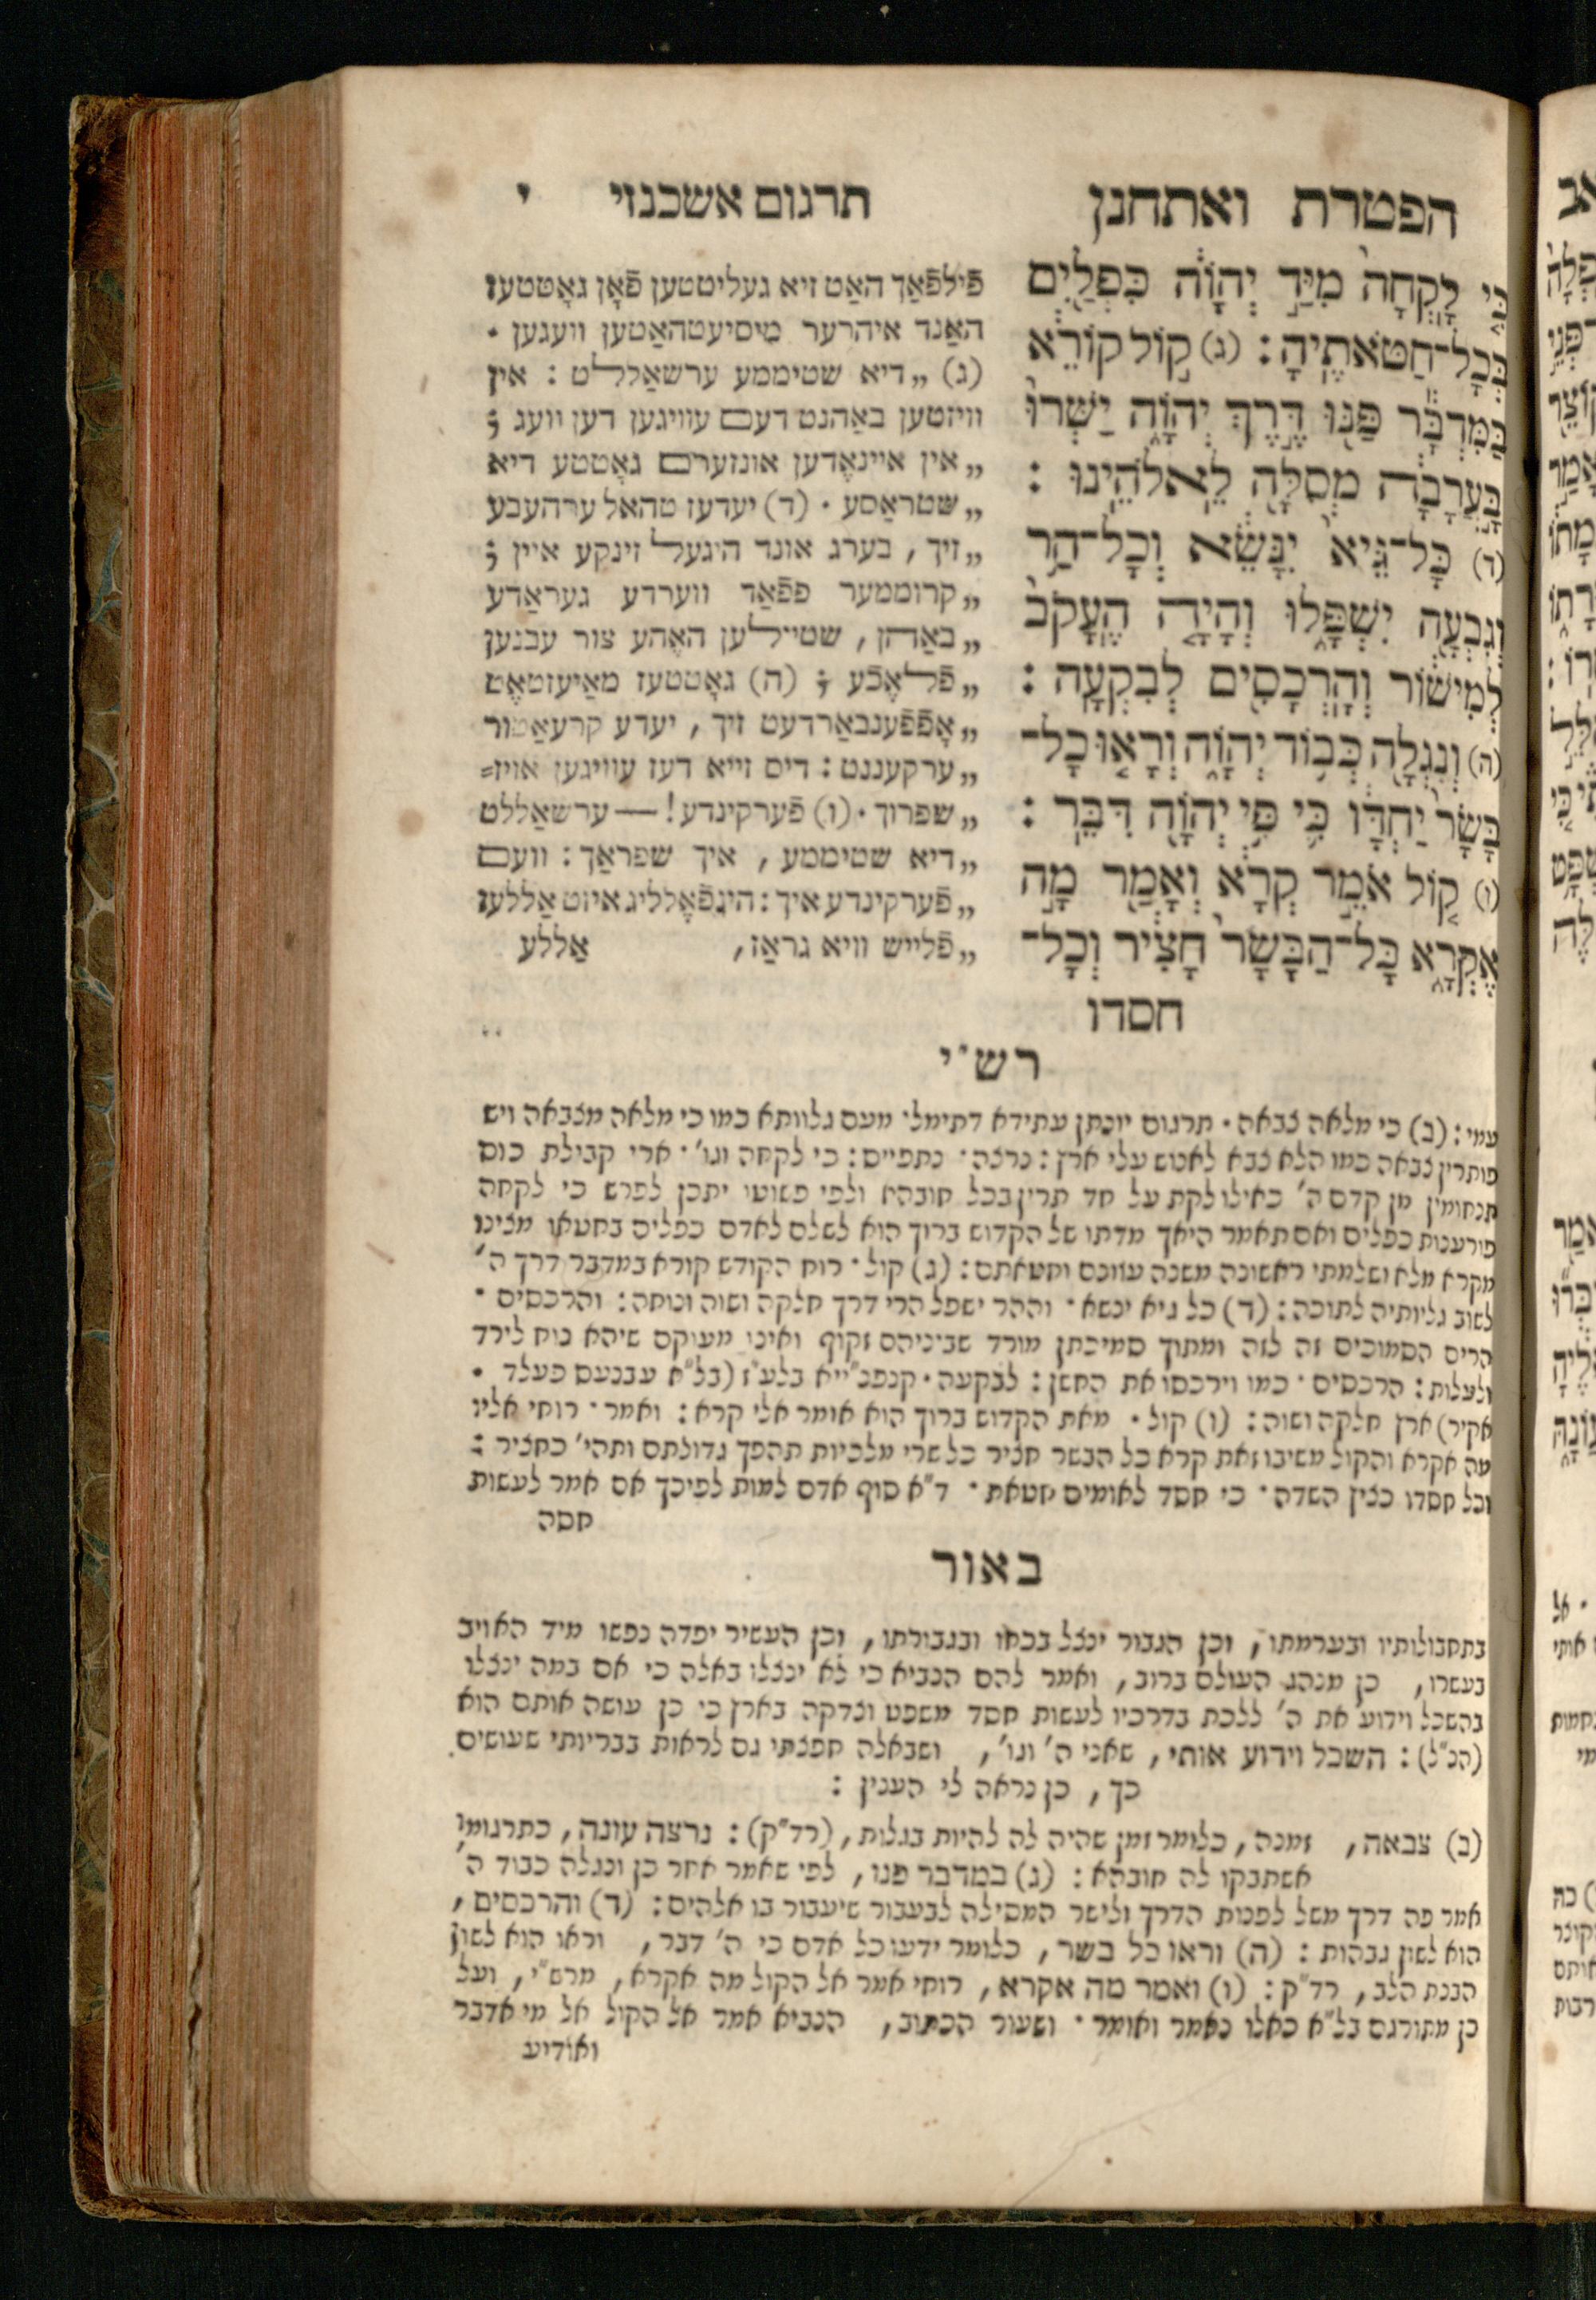 הפטרת ואתחנן
תרגום אשכנזי י
כִּי לָקְחָה מִיַּד יְהוָה כִּפְלַיִם
בְּכָל־חַטֹּאתֶיהָ׃ (ג) קוֹל קוֹרֵא
בַּמִּדְבָּר פַּנּוּ דֶּרֶךְ יְהוָה יַשְּׁרוּ
בָּעֲרָבָה מְסִלָּה לֵאלֹהֵינוּ׃
(ד) כָּל־גֶּיא יִנָּשֵׂא וְכָל־הַר
וְגִבְעָה יִשְׁפָּלוּ וְהָיָה הֶעָקֹב
לְמִישׁוֹר וְהָרְכָסִים לְבִקְעָה׃
(ה) וְנִגְלָה כְּבוֹד יְהוָה וְרָאוּ כָל־
בָּשָׂר יַחְדָּו כִּי פִּי יְהוָה דִּבֵּר׃
(ו) קוֹל אֹמֵר קְרָא וְאָמַר מָה
אֶקְרָא כָּל־הַבָּשָׂר חָצִיר וְכָל־
חסדו
פֿילפֿאַך האַט זיא געליטטען פֿאָן גאָטטעז
האַנד איהרער מיסיעטהאַטען וועגען.
(ג) „דיא שטיממע ערשאַללט: אין
וויזטען באַהנט דעם עוויגען דען וועג;
„אין איינאֶדען אונזערם גאָטטע דיא
„שטראַסע. (ד) יעדעז טהאל ערהעבע
„זיך, בערג אונד היגעל זינקע איין;
„קרוממער פפֿאַד ווערדע געראַדע
„באַהן, שטיילען האֶהע צור עבנען
„פֿלאֶכֿע; (ה) גאָטטעז מאַיעזטאֶט
„אָפֿפֿענבאַרדעט זיך, יעדע קרעאַטור
„ערקעננט: דיס זייא דעז עוויגען אויז=
„שפרוך. (ו) פֿערקינדע! — ערשאַללט
„דיא שטיממע, איך שפראַך: וועם
„פֿערקינדע איך: הינפֿאֶלליג איזט אַללעז
„פֿלייש וויא גראַז, אַללע
רש״י
עמי: (ב) כי מלאה צבאה. תרגום יונתן עתידא דתימלי מעם גלוותא כמו כי מלאה מצבאה ויש
פותרין צבאה כמו הלא צבא לאנוש עלי ארץ: נרצה. נתפייס: כי לקחה וגו'. ארי קבילת כוס
תנחומין מן קדם ה' כאילו לקת על חד תרין בכל חובהא ולפי פשוטו יתכן לפרש כי לקחה
פורענות כפלים ואם תאמר היאך מדתו של הקדוש ברוך הוא לשלם לאדם כפלים בחטאו מצינו
מקרא מלא ושלמתי ראשונה משנה עוונם וחטאתם: (ג) קול. רוח הקודש קורא במדבר דרך ה'
לשוב גליותיה לתוכה: (ד) כל גיא ינשא. וההר ישפל הרי דרך חלקה ושוה ונוחה: והרכסים.
הרים הסמוכים זה לזה ומתוך סמיכתן מורד שביניהם זקוף ואינו מעוקם שיהא נוח לירד
ולעלות: הרכסים. כמו וירכסו את החשן: לבקעה. קנפנ"ייא בלע"ז (בל"א עבנעס פעלד.
אקיר) ארץ חלקה ושוה: (ו) קול. מאת הקדוש ברוך הוא אומר אלי קרא: ואמר. רוחי אליו
מה אקרא והקול משיבו זאת קרא כל הבשר חציר כל שרי מלכיות תהפך גדולתם ותהי' כחציר:
וכל חסדו כציץ השדה. כי חסד לאומים חטאת. ד"א סוף אדם למות לפיכך אם אמר לעשות
חסה
באור
בתחבולותיו ובערמתו, וכן הגבור ינצל בכחו ובגבורתו, וכן העשיר יפדה נפשו מיד האויב
בעשרו, כן מנהג העולם ברוב, ואמר להם הנביא כי לא ינצלו באלה כי אם במה ינצלו
בהשכל וידוע את ה' ללכת בדרכיו לעשות חסד משפט וצדקה בארץ כי כן עושה אותם הוא
(הנ"ל): השכל וידוע אותי, שאני ה' וגו', ושבאלה חפצתי גם לראות בבריותי שעושים
כך, כן נראה לי הענין:
(ב) צבאה, זמנה, כלומר זמן שהיה לה להיות בגלות, (רד"ק): נרצה עונה, כתרגומו
אשתבקו לה חובהא: (ג) במדבר פנו, לפי שאמר אחר כן ונגלה כבוד ה'
אמר פה דרך משל לפנות הדרך ולישר המסילה לבעבור שיעבור בו אלהים: (ד) והרכסים,
הוא לשון גבהות: (ה) וראו כל בשר, כלומר ידעו כל אדם כי ה' דבר, וראו הוא לשון
הבנת הלב, רד"ק: (ו) ואמר מה אקרא, רוחי אמר אל הקול מה אקרא, מרש"י, ועל
כן מתורגם בל"א כאלו נאמר ואומר. ושעור הכתוב, הנביא אמר אל הקול אל מי אדבר
ואודיע